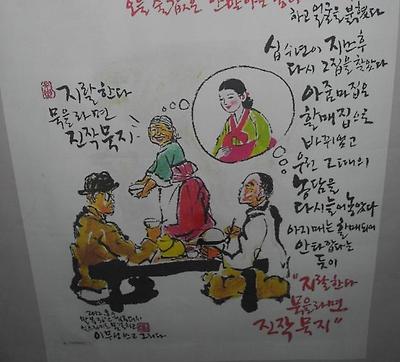 오늘 술값은 안받아
하고 얼굴을 붉혔다
십수년이 지난후
다시 그집을 찾았다
아줌마집은
할매집으로
바뀌었고
우린 그때의
농담을
다시늘어놓았다
아지매는 할매되어
안타깝다는
듯이
"지랄한다
묵을라면
진작묵지"
지랄한다
묵을라면
진작묵지
이무성 쓰고 그리다